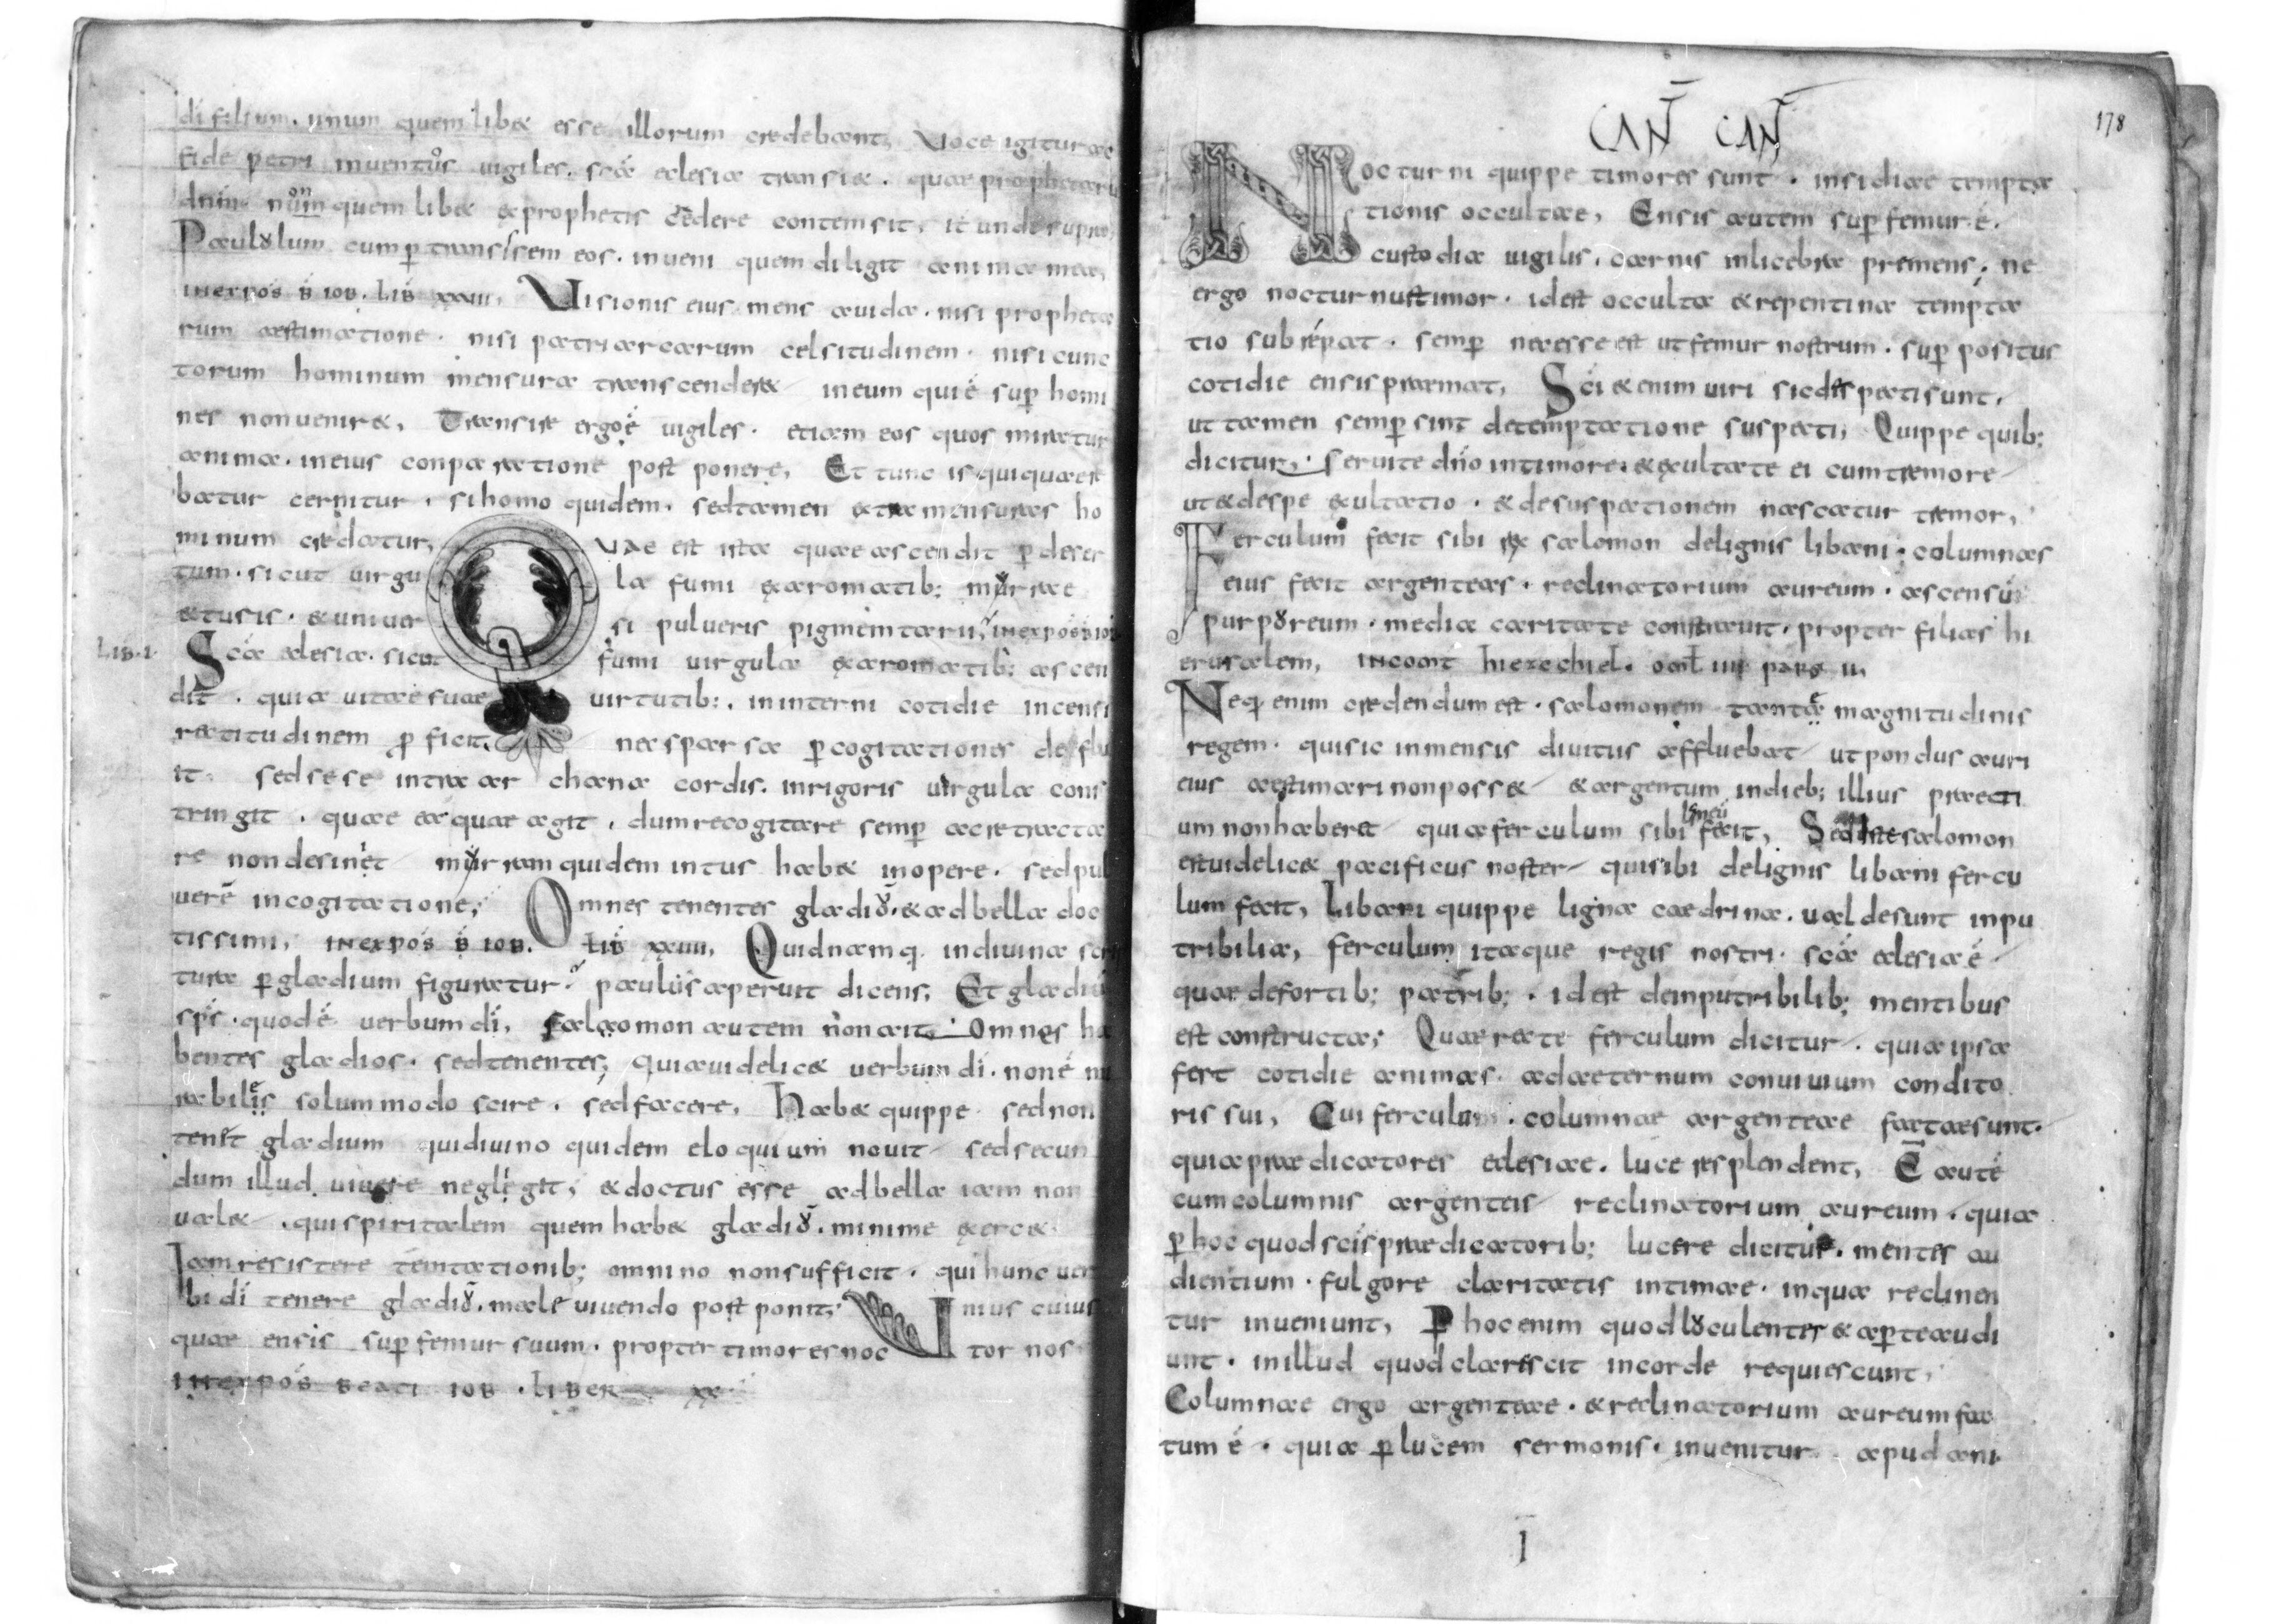 di filium. unum quemlib& esse illorum credebant, Voce igitur ac
fide petri inventos vigiles. scae eclesiae transi&. quae prophetaru
dnm non quemlib& exprophetis credere contemsit, it unde supra,
Paululum cump transissem eos. inveni quem diligit anima mea,
inexpos b iob. lib xxvii, Visionis eius mens avida. nisi propheta
rum aestimatione. nisi patriarcarum celsitudinem. nisi cunc
torum hominum mensura transcender& ineum qui ē sup homi
nes nonvenir&, Transire ergo ē vigiles. etiam eos quos miratur
anima. ineius conparatione post ponere, Et tunc is qui quaere
batur cernitur. sihomo quidem. sedtamen extra mensuras ho
minum credatur,
Quae est ista quae ascendit p deser
tum. sicut virgula fumi exaromatib; myrrae
&tusis. &universi pulveris pigmentarii, inexpos b iob
Lib. i. Scae eclesiae. sicut fumi virgula exaromatib; ascen
dit. quia vitae suae virtutib;. ininterni cotidie incensi
rectitudinem pficit, necsparsa pcogitationes deflu
it sedsese intra archana cordis. inrigoris virgula cons
tringit. quae ea quae agit, dumrecogitare semp ac retracta
re nondesinet myrram quidem intus hab& inopere. sedpul
verē incogitatione; Omnes tenentes gladios. &adbella doc
tissimi, inexpos b iob. lib xviiii, Quidnamq. indivina scrip
tura p gladium figuratur. paulus aperuit dicens, Et gladiū
sps. quodē verbum di, Salomon autem non ait, Omnes ha
bentes gladios. sedtenentes; quiavidelic& verbum di. nonē mi
rabiles solummodo scire. sedfacere, Hab& quippe sednon
tenet gladium quidivino quidem eloquium novit sedsecun
dum illud vivere neglegit, &doctus esse adbella iam non
val& quispiritalem quem hab& gladiū. minime exerc&
Iamresistere temtationib; omnino nonsufficit. quihunc ver
bi di tenere gladiū. male vivendo postponit; Unius cuius
quae ensis sup femur suum. propter timores noctornos
inexpos beati iob. liber xx
CAÑ CAÑ
178
Nocturni quippe timores sunt. insidiae tempta
tionis occultae, Ensis autem sup femur ē.
custodia vigilis, carnis inlicebra premens; ne
ergo nocturnustimor. idest occulta &repentina tempta
tio subrepat. semp necesse est ut femur nostrum. sup positus
cotidie ensis praemat, Sci &enim viri sic despectisunt,
ut tamen semp sint detemptatione suspecti, Quippe quib;
dicitur, Servite dno intimore. &exultate ei cumtremore
ut &despe exultatio. &desuspectionem nascatur tremor,
Ferculum fecit sibi rex salomon delignis libani; columnas
eius fecit argenteas. reclinatorium aureum. ascensū
purpureum. media caritate constravit. propter filias hi
erusalem, incomt hiezechiel. omel iiii pars ii
Neq enim credendum est. salomonem tantae magnitudinis
regem. quisic inmensis divitiis affluebat ut pondus auri
eius aestimari nonposs& &argentum indieb; illius praecti
um nonhaberet quiaferculum sibi ligneū fecit, Sed iste salomon
estvidelic& pacificus noster quisibi delignis libani fercu
lum fecit, Libani quippe ligna caedrina. valdesunt inpu
tribilia, ferculum itaque regis nostri. scā eclesia ē
quae defortib; patrib;. idest deinputribilib; mentibus
est constructa; Quae recte ferculum dicitur. quia ipsa
fert cotidie animas. adaeternum convivium condito
ris sui, Cui ferculum. columnae argenteae factaesunt.
quiapraedicatores eclesiae. luce resplendent, Ē autē
cumcolumnis argenteis reclinatorium aureum. quia
p hoc quod scis praedicatorib; lucere dicitur. mentes au
dientium. fulgore claritatis intimae. inqua reclinen
tur inveniunt, P hoc enim quod luculenter &apteaudi
unt. inillud quod clarescit incorde requiescunt,
Columnae ergo argenteae. &reclinatorium aureum fac
tum ē. quia p lucem sermonis. invenitur apud ani
I